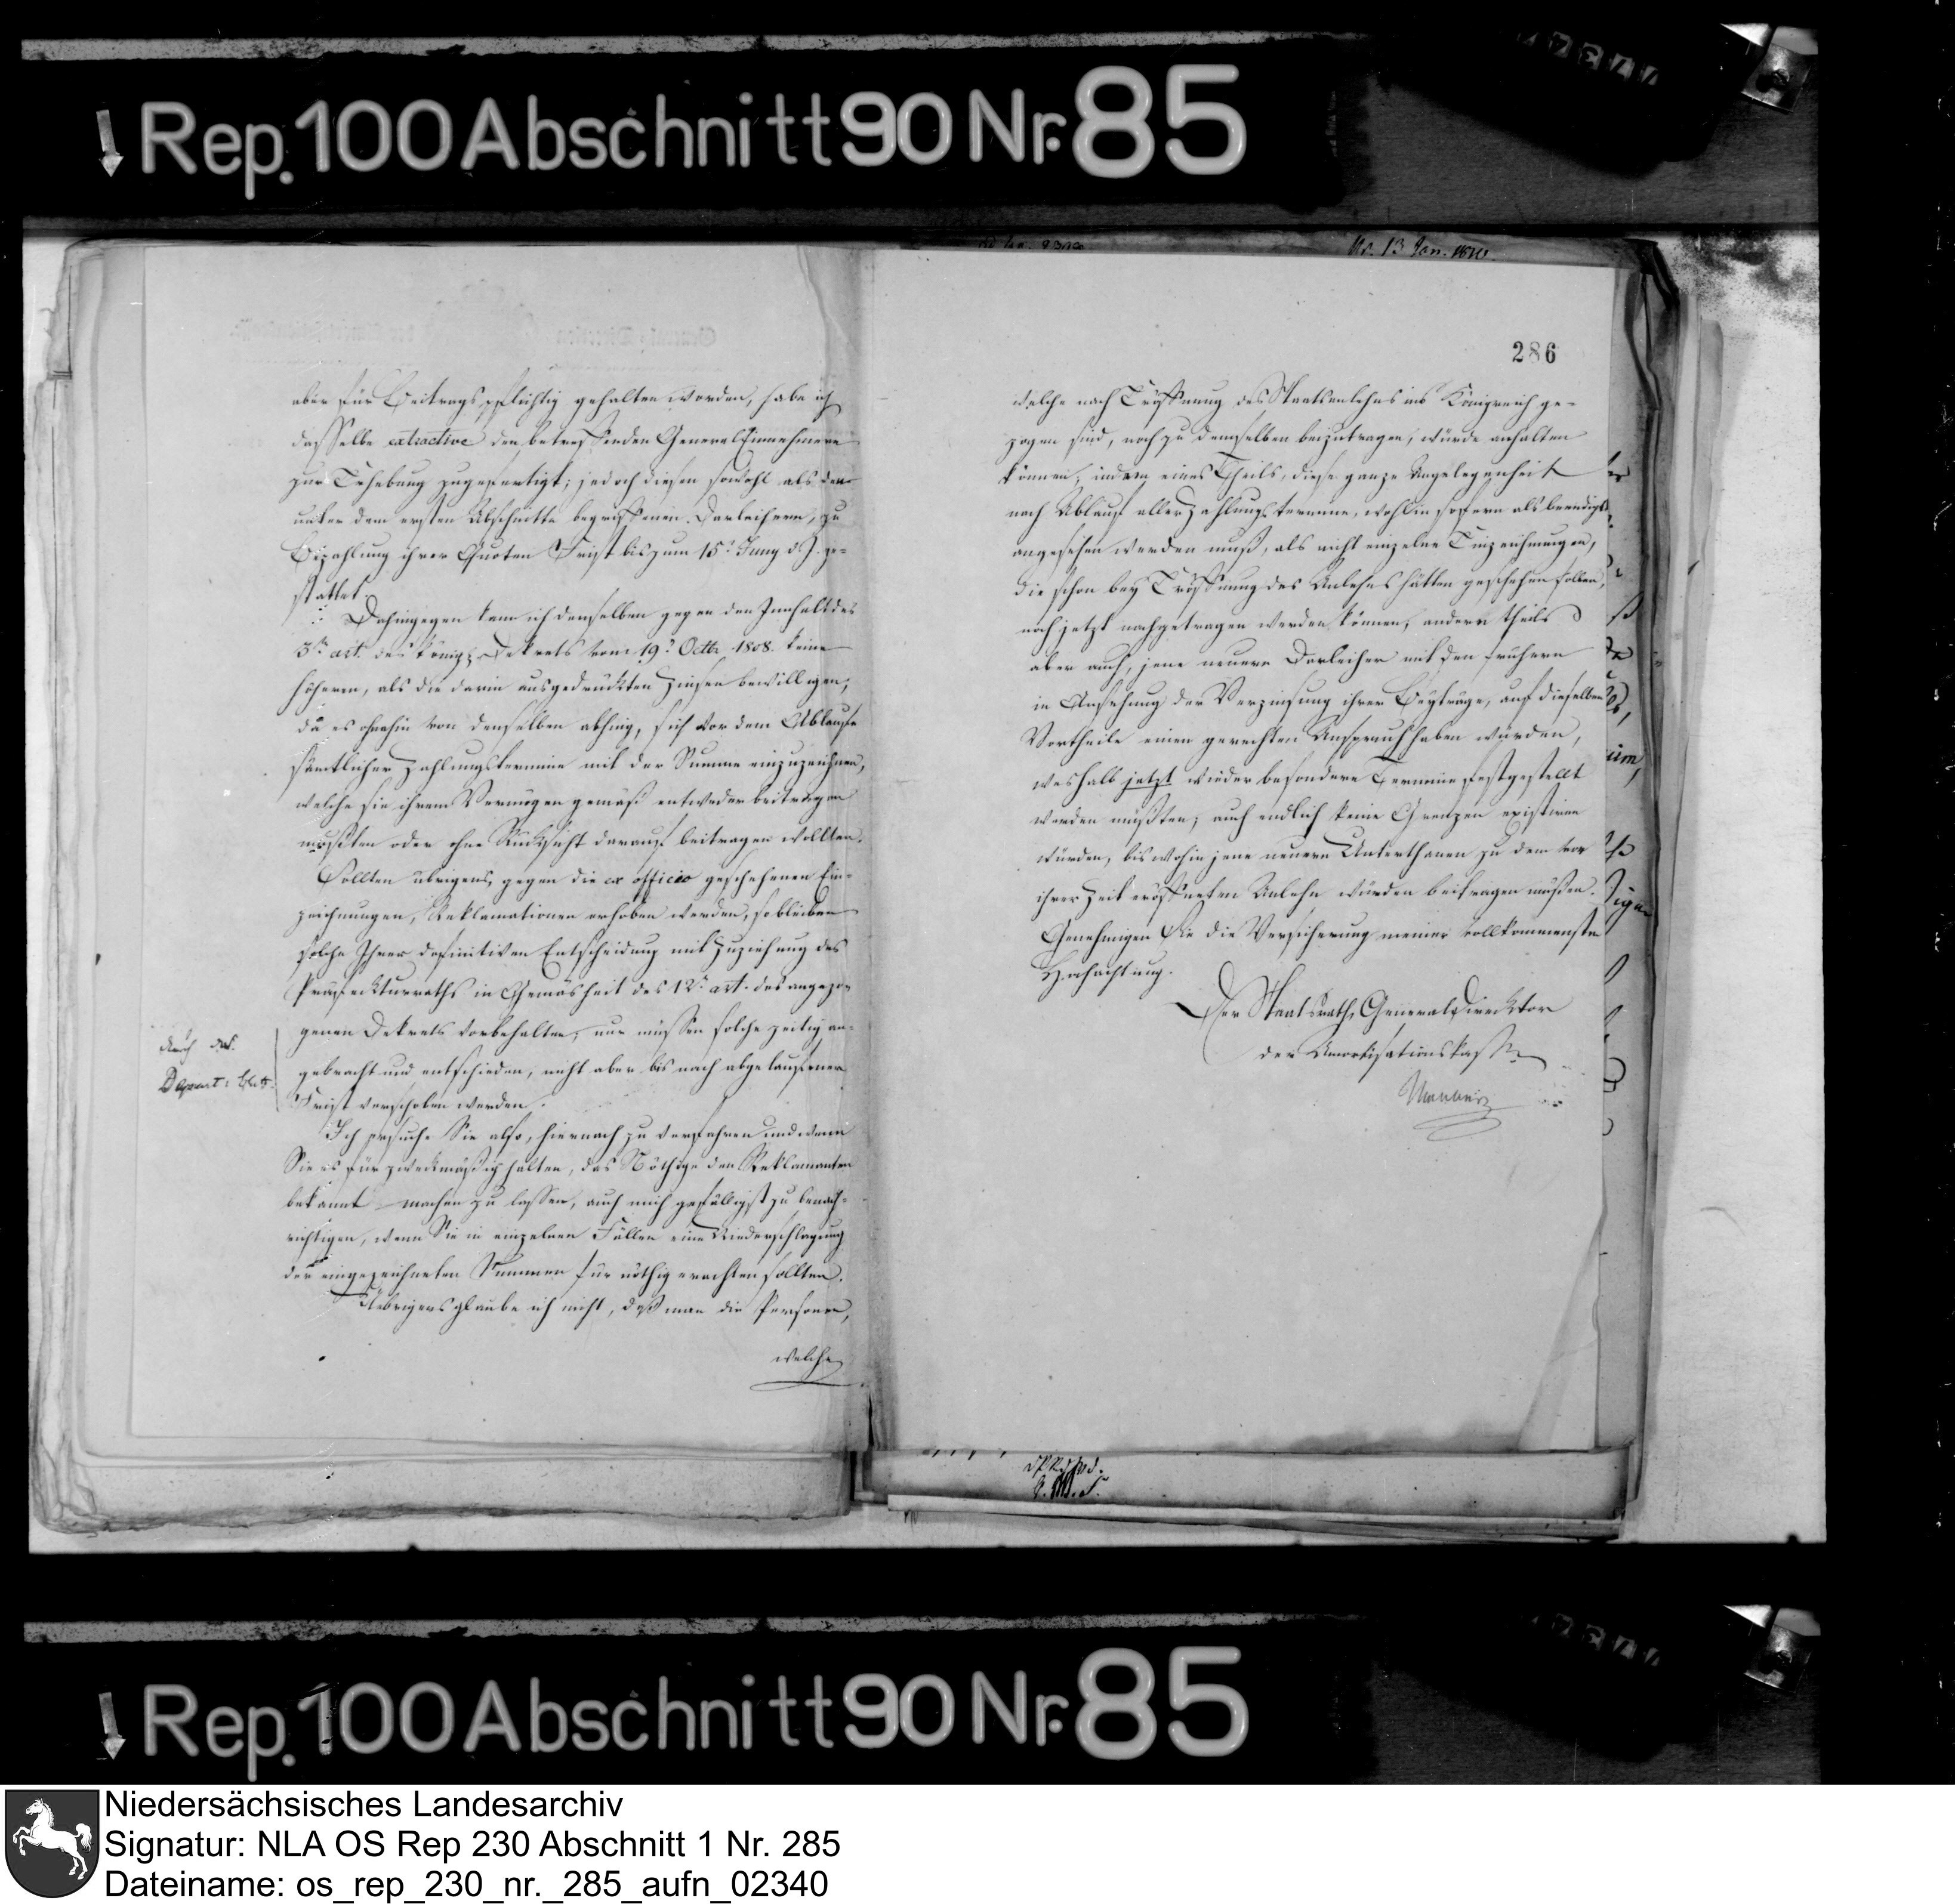 Rep. 100 Abschnitt 90 Nr. 85
No. 13 Jan. 1810.
286
aber für Beitragspflichtig gehalten worden, habe ich
dasselbe extractive den betreffenden General Einnehmern
zur Erhebung zugefertigt; jedoch diesen sowohl als den
unter dem ersten Abschnitte begriffenen Darleihern, zu
Bezahlung ihrer Quoten Frist bis zum 15t Juny d. J. ge-
stattet.
Dahingegen kann ich denselben gegen den Innhalt des
3ten art. des königl. Dekrets vom 19t Octbr 1808. keine
höheren, als die darin ausgedrückten Zinsen bewilligen,
da es ohnehin von denselben abhing, sich vor dem Ablaufe
sämtlicher Zahlungstermine mit der Summe einzuzeichnen,
welche sie ihrem Vermögen gemäß entweder beitragen
mußten oder ohne Rücksicht darauf beitragen wollten.
Sollten übrigens, gegen die ex officio geschehenen Ein-
zeichnungen, Reklamationen erhoben werden, so bleiben
solche Ihrer definitiven Entscheidung mit Zuziehung des
Präfekturraths in Gemäsheit des 12t art. des angezo-
genen Dekrets vorbehalten, nur müssen solche zeitig an-
gebracht und entschieden, nicht aber bis nach abgelaufener
Frist verschoben werden.
durch das
Depart: Blatt
Ich ersuche Sie also, hiernach zu verfahren und wenn
Sie es für zweckmäßig halten, das Nöthige den Reklamanten
bekannt machen zu lassen, auch mich gefälligst zu benach-
richtigen, wenn Sie in einzelnen Fällen eine Niederschlagung
der eingezeichneten Summen für nöthig erachten sollten.
Übrigens glaube ich nicht, daß man die Personen,
welche
welche nach Eröffnung des Staatsanlehns ins Königreich ge-
zogen sind, noch zu demselben beizutragen, würde anhalten
können, indem eines Theils, diese ganze Angelegenheit
nach Ablauf aller Zahlungstermine, wohl in sofern als beendigt
angesehen werden muß, als nicht einzelne Einzeichnungen,
die schon bey Eröffnung des Anlehns hätten geschehen sollen,
noch jetzt nachgetragen werden können, andern theils
aber auch, jene neuern Darleiher mit den frühern
in Ansehung der Verzinsung ihrer Beyträge, auf dieselben
Vortheile einen gerechten Anspruch haben würden,
weshalb jetzt wieder besondere Termine festgestellt
werden müßten; auch endlich keine Grenzen existiren
würden, bis wohin jene neuern Unterthanen zu dem vor
ihrer Zeit eröffneten Anlehn würden beitragen müßen.
Genehmigen Sie die Versicherung meiner vollkommensten
Hochachtung.
Der Staatsrath, General Direcktor
der Amortisationskasse
Rep. 100 Abschnitt 90 Nr. 85
Niedersächsisches Landesarchiv
Signatur: NLA OS Rep 230 Abschnitt 1 Nr. 285
Dateiname: os_rep_230_nr._285_aufn_02340